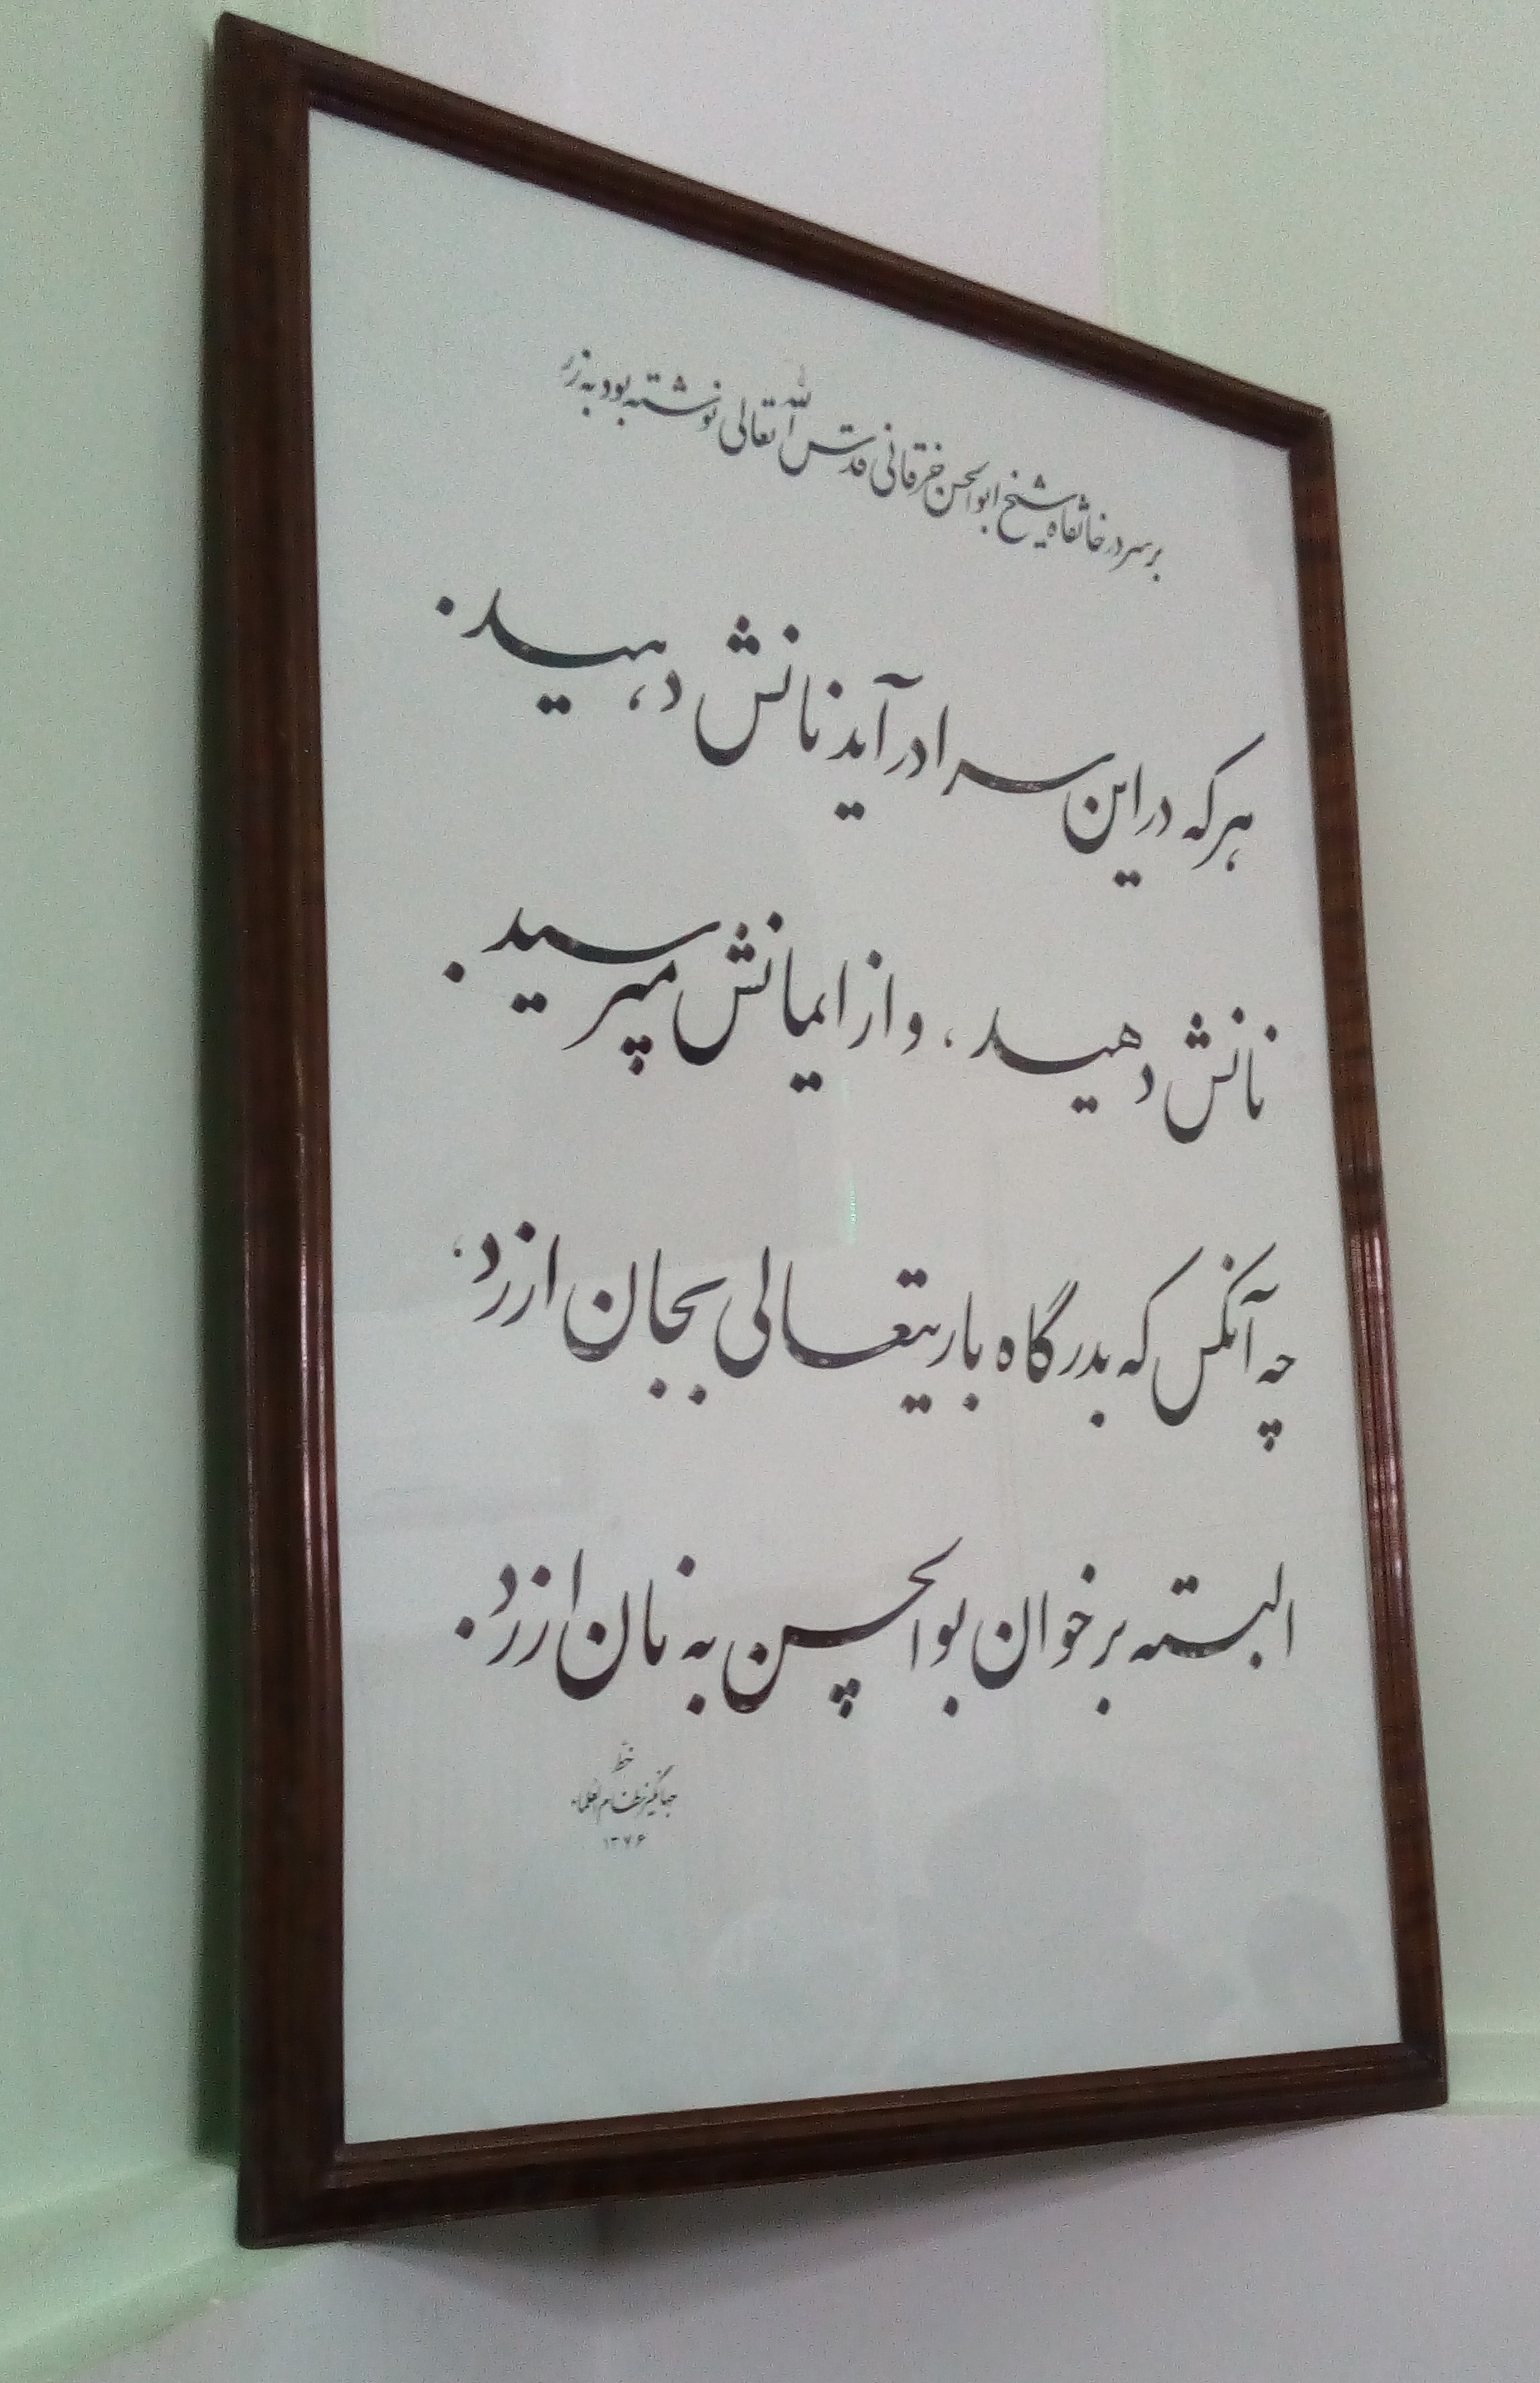 بر سر در خانقاه شیخ ابوالحسن خرقانی قدس الله تعالی نوشته بود به زر
هر که در این سرا در آید نانش دهید.
نانش دهید، و از ایمانش مپرسید.
چه آنکس که بدرگاه باریتعالی بجان ارزد،
البته بر خوان بوالحسن به نان ارزد.
خط
جهانگیر نظام العلماء
۱۳۷۶